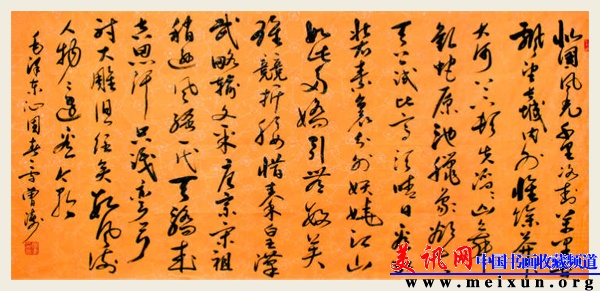 北国风光千里冰封万里雪
飘望长城内外惟馀莽莽
大河上下顿失滔滔山舞
银蛇原驰蜡象欲与
天公试比高须晴日看红
装素裹分外妖娆江山
如此多娇引无数英
雄竞折腰惜秦皇汉
武略输文采唐宗宋祖
稍逊风骚一代天骄成
吉思汗只识弯弓
射大雕俱往矣数风流
人物还看今朝
毛泽东沁园春雪曹
美讯网中国书画收藏频道
www.meixun.org